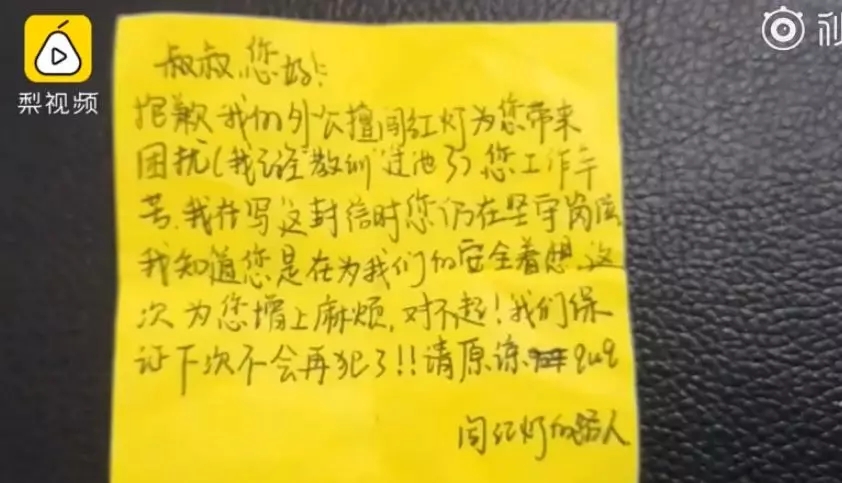 梨视频
秒
叔叔,您好!
抱歉我们外公擅闯红灯为您带来
困扰(我已经教训过他了)您工作辛
苦,我在写这封信时您仍在坚守岗位
我知道您是在为我们的安全着想,这
次为您增上麻烦,对不起!我们保
证下次不会再犯了!!请原谅 QuQ
闯红灯的路人